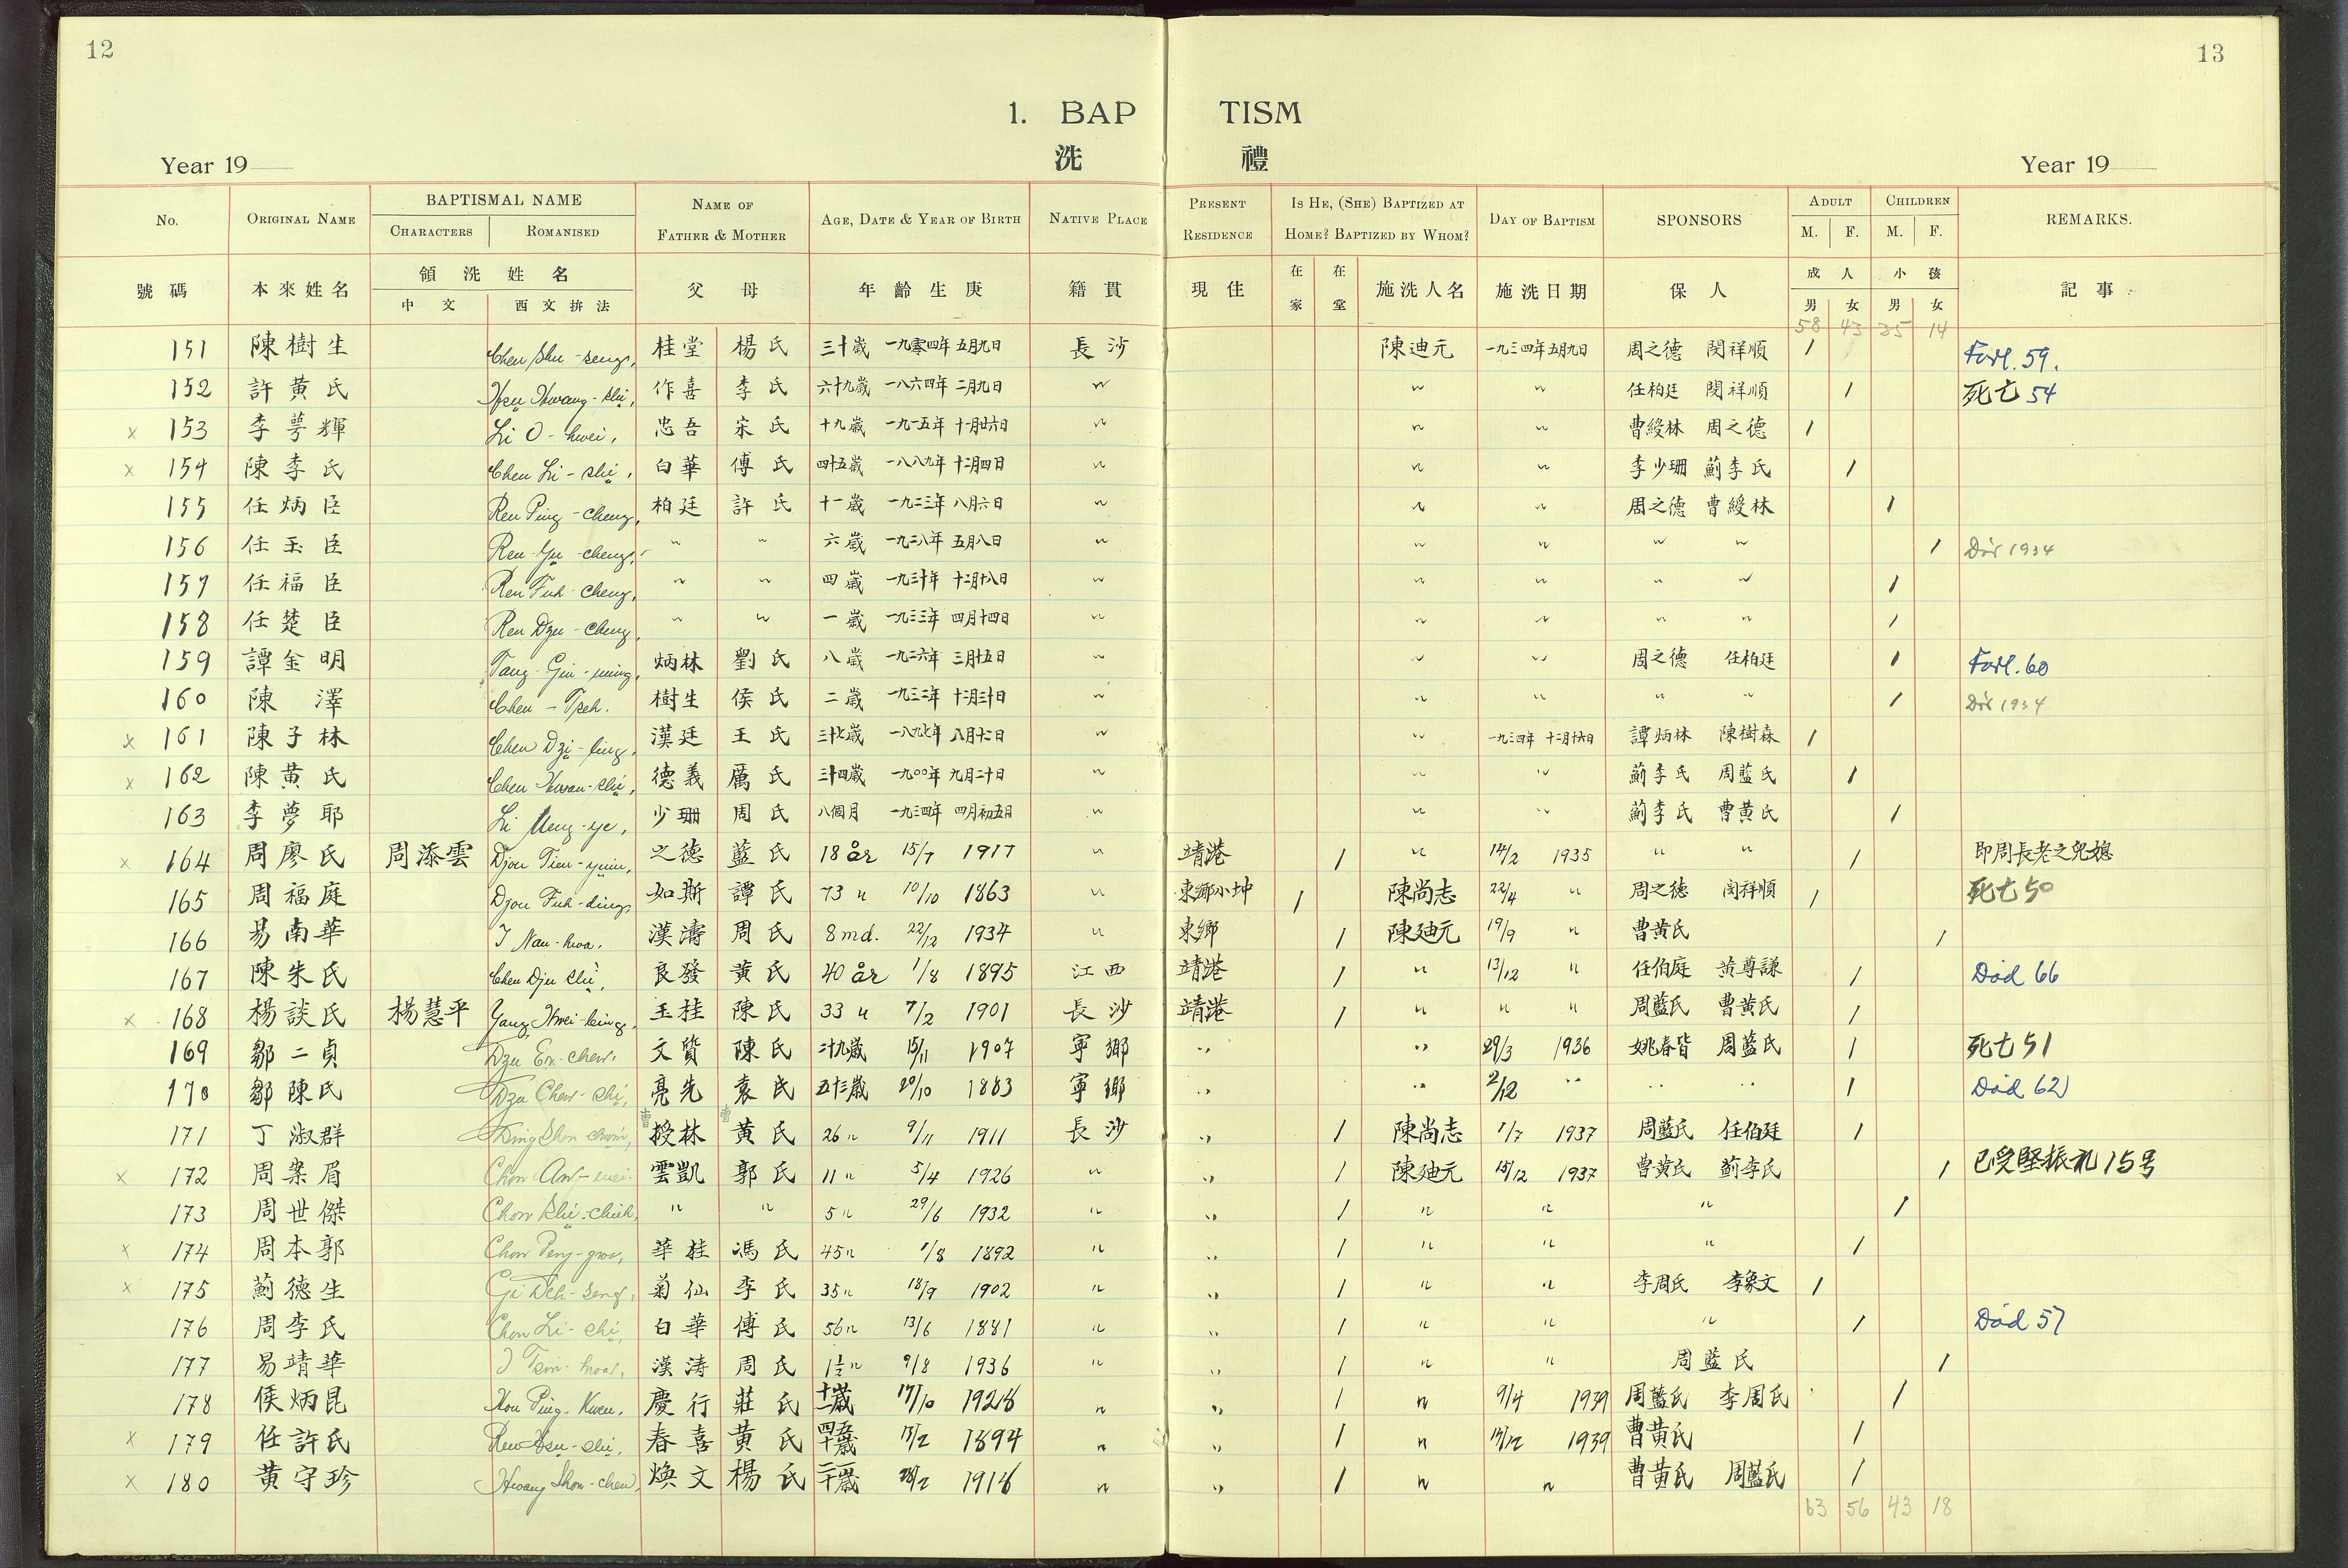 12
13
1. BAP TISM
洗 禮
Year 19
Year 19
No. ORIGINAL NAME BAPTISMAL NAME CHARACTERS ROMANISED NAME OF FATHER & MOTHER AGE, DATE & YEAR OF BIRTH NATIVE PLACE PRESENT RESIDENCE IS HE, (SHE) BAPTIZED AT HOME? BAPTIZED BY WHOM? DAY OF BAPTISM SPONSORS ADULT M. F. CHILDREN M. F. REMARKS.
號碼 本來姓名 領洗姓名 中文 西文拚法 父母 年齡生庚 籍貫 現住 在家 在堂 施洗人名 施洗日期 保人 成人 男 女 小孩 男 女 記事
58 43 35 14
151 陳樹生 Chen Shu-seng, 桂堂 楊氏 三十歲 一九零四年 五月九日 長沙 陳迪元 一九三四年五月九日 周之德 閔祥順 1 Forl. 59.
152 許黃氏 Hsu Hwang-shi, 作喜 李氏 六十九歲 一八六四年 二月九日 〃 〃 〃 任柏廷 閔祥順 1 死亡 54
x 153 李萼輝 Li O-hwei, 忠吾 宋氏 十九歲 一九一五年 十一月廿六日 〃 〃 〃 曹綬林 周之德 1
x 154 陳李氏 Chen Li-shi, 白華 傅氏 四十五歲 一八八九年 十二月四日 〃 〃 〃 李少珊 薊李氏 1
155 任炳臣 Ren Ping-cheng, 柏廷 許氏 十一歲 一九二三年 八月六日 〃 〃 〃 周之德 曹綬林 1
156 任玉臣 Ren Yu-cheng, 〃 〃 六歲 一九二八年 五月八日 〃 〃 〃 〃 〃 1 Dör 1934
157 任福臣 Ren Fuh-cheng, 〃 〃 四歲 一九三十年 十二月十八日 〃 〃 〃 〃 〃 1
158 任楚臣 Ren Dzu-cheng, 〃 〃 一歲 一九三三年 四月十四日 〃 〃 〃 〃 〃 1
159 譚金明 Tang Gin-ming, 炳林 劉氏 八歲 一九二六年 三月十五日 〃 〃 〃 周之德 任柏廷 1 Forl. 60
160 陳澤 Chen-Tseh. 樹生 侯氏 二歲 一九三二年 十二月三十日 〃 〃 〃 〃 〃 1 Dör 1934
x 161 陳子林 Chen Dzi-ling, 漢廷 王氏 三十七歲 一八九七年 八月十二日 〃 〃 一九三四年 十二月十六日 譚炳林 陳樹森 1
x 162 陳黃氏 Chen Hwan-shi, 德義 厲氏 三十四歲 一九〇〇年 九月二十日 〃 〃 〃 薊李氏 周藍氏 1
163 李夢耶 Li Meng-ye, 少珊 周氏 八個月 一九三四年 四月初五日 〃 〃 〃 薊李氏 曹黃氏 1
x 164 周廖氏 周添雲 Djou Tien-yuin, 之德 藍氏 18 år 15/7 1917 〃 靖港 1 〃 14/2 1935 〃 〃 1 即周長老之兒媳
165 周福庭 Djou Fuh-ding, 如斯 譚氏 73 〃 10/10 1863 〃 東鄉小坤 1 陳尚志 22/4 〃 周之德 閔祥順 1 死亡 50
166 易南華 I Nan-hwa, 漢濤 周氏 8 md. 22/12 1934 〃 東鄉 1 陳廸元 19/9 〃 曹黃氏 1
167 陳朱氏 Chen Dju shi, 良發 黃氏 40 år 1/8 1895 江西 靖港 1 〃 13/12 〃 任伯庭 黃尊謙 1 Död 66
x 168 楊談氏 楊慧平 Yang Hwei-bing, 玉桂 陳氏 33 〃 7/2 1901 長沙 靖港 1 〃 〃 〃 周藍氏 曹黃氏 1
169 鄒二貞 Dzu Er-chen, 文質 陳氏 廿九歲 15/11 1907 寧鄉 〃 〃 29/3 1936 姚春皆 周藍氏 1 死亡 51
170 鄒陳氏 Dzu Chen-shi, 亮先 袁氏 五十三歲 20/10 1883 寧鄉 〃 〃 2/12 〃 〃 〃 1 Död 62
171 丁淑群 Ding Shou chuin, 曹授林 曹黃氏 26 〃 9/11 1911 長沙 〃 1 陳尚志 1/7 1937 周藍氏 任伯廷 1
x 172 周案眉 Chou An-mei 雲凱 郭氏 11 〃 5/4 1926 〃 〃 1 陳廸元 15/12 1937 曹黃氏 薊李氏 1 已受堅振礼 15号
173 周世傑 Chou Shi-chieh, 〃 〃 5 〃 29/6 1932 〃 〃 1 〃 〃 〃 1
x 174 周本郭 Chou Peng-gwo, 華桂 馮氏 45 〃 1/8 1892 〃 〃 1 〃 〃 〃 1
x 175 薊德生 Gi Deh-seng, 菊仙 李氏 35 〃 18/9 1902 〃 〃 1 〃 〃 李周氏 李象文 1
176 周李氏 Chou Li-shi, 白華 傅氏 56 〃 13/6 1881 〃 〃 1 〃 〃 〃 1 Död 57
177 易靖華 I Tsin-hwa, 漢涛 周氏 1½ 〃 9/8 1936 〃 〃 1 〃 〃 周藍氏 1
178 侯炳昆 Hou Ping-Kwen, 慶行 莊氏 十一歲 17/10 1928 〃 〃 1 〃 9/4 1939 周藍氏 李周氏 1
x 179 任許氏 Ren Hsu-shi, 春喜 黃氏 四十五歲 15/2 1894 〃 〃 1 〃 17/12 1939 曹黃氏 1
x 180 黃守珍 Hwang Shou-chen, 煥文 楊氏 二十一歲 28/2 1918 〃 〃 1 〃 〃 曹黃氏 周藍氏 1
63 56 43 18